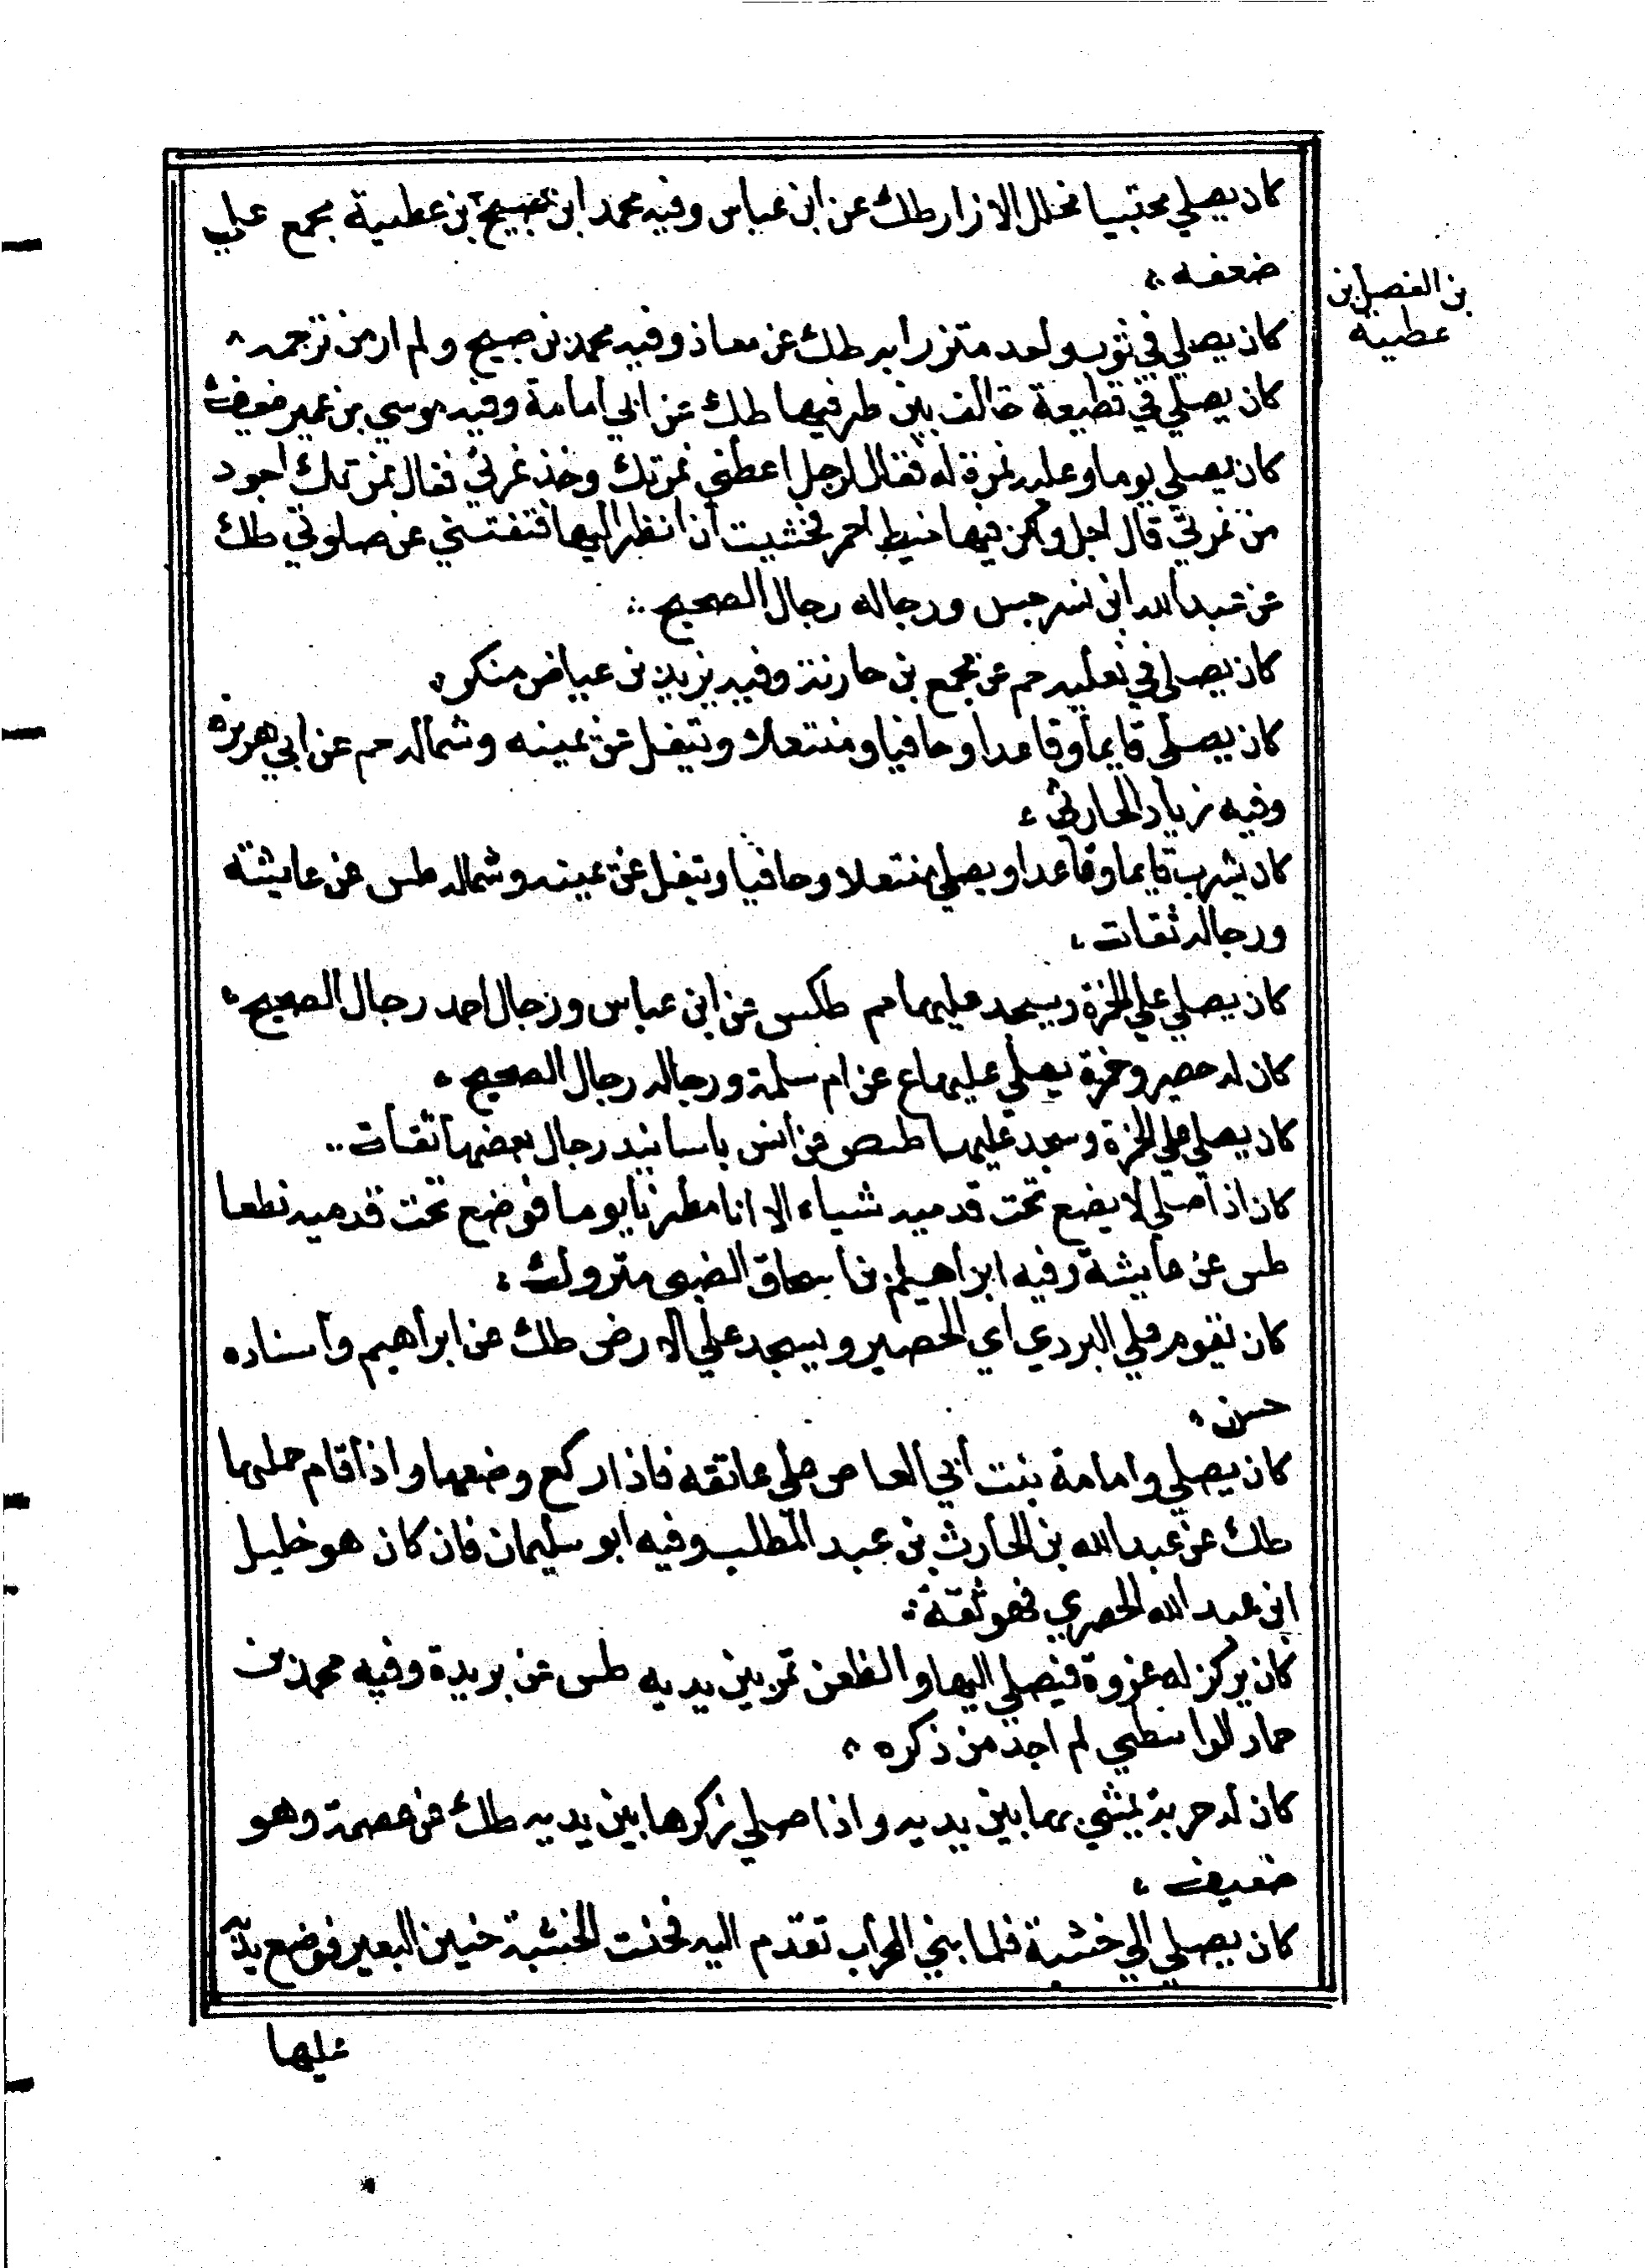 كان يصلي محتبيا محلل الازار طك عن ابن عباس وفيه محمد ابن صبيح بن عطية مجمع علي
ضعفه
بن الفضل بن
عطية
كان يصلي في ثوب واحد متزرا به طك عن معاذ وفيه محمد بن صبيح ولم ار من ترجمه
كان يصلي في قطيعة خالف بين طرفيها طك عن ابي امامة وفيه موسي بن عمير ضعيف
كان يصلي يوما وعليه نمرة له فقال لرجل اعطني نمرتك وخذ نمرتي فقال نمرتك اجود
من نمرتي قال اجل ولكن فيها خيط احمر فخشيت أن انظر اليها فتفتني عن صلوتي طك
عن عبد الله ابن سرجس ورجاله رجال الصحيح
كان يصلي في نعليه حم عن مجمع بن حارثة وفيه يزيد بن عياض منكر
كان يصلي قايما وقاعدا وحافيا ومنتعلا وينفتل عن يمينه وشماله حم عن ابي هريرة
وفيه زياد الحارثي
كان يشرب قايما وقاعدا ويصلي منتعلا وحافيا وينفتل عن يمينه وشماله طس عن عايشة
ورجاله ثقات
كان يصلي علي الخمرة ويسجد عليها حم طكس عن ابن عباس ورجال احمد رجال الصحيح
كان له حصير وخمرة يصلي عليهما ع عن ام سلمة ورجاله رجال الصحيح
كان يصلي علي الخمرة وسجد عليها طصس عن انس باسانيد رجال بعضها ثقات
كان اذا صلي لا يضع تحت قدميه شياء الا انا مطرنا يوما فوضع تحت قدميه نطعا
طس عن عايشة وفيه ابراهيم بن اسحاق الضبي متروك
كان يقوم علي البردي اي الحصير ويسجد علي الارض طك عن ابراهيم واسناده
حسن
كان يصلي وامامة بنت أبي العاص علي عاتقه فاذا ركع وضعها واذا قام حملها
طك عن عبد الله بن الحارث بن عبد المطلب وفيه ابو سليمان فان كان هو خليل
ابن عبد الله الحصري فهو ثقة
كان يركز له عنزة فيصلي اليها والظعن تمر بين يديه طس عن بريدة وفيه محمد بن
حماد الواسطي لم اجد من ذكره
كان له حربة يمشي بها بين يديه واذا صلي زكرها بين يديه طك عن عصمة وهو
ضعيف
كان يصلي الي خشبة فلما بني المحراب تقدم اليه فحنت الخشبة حنين البعير فوضع يده
عليها